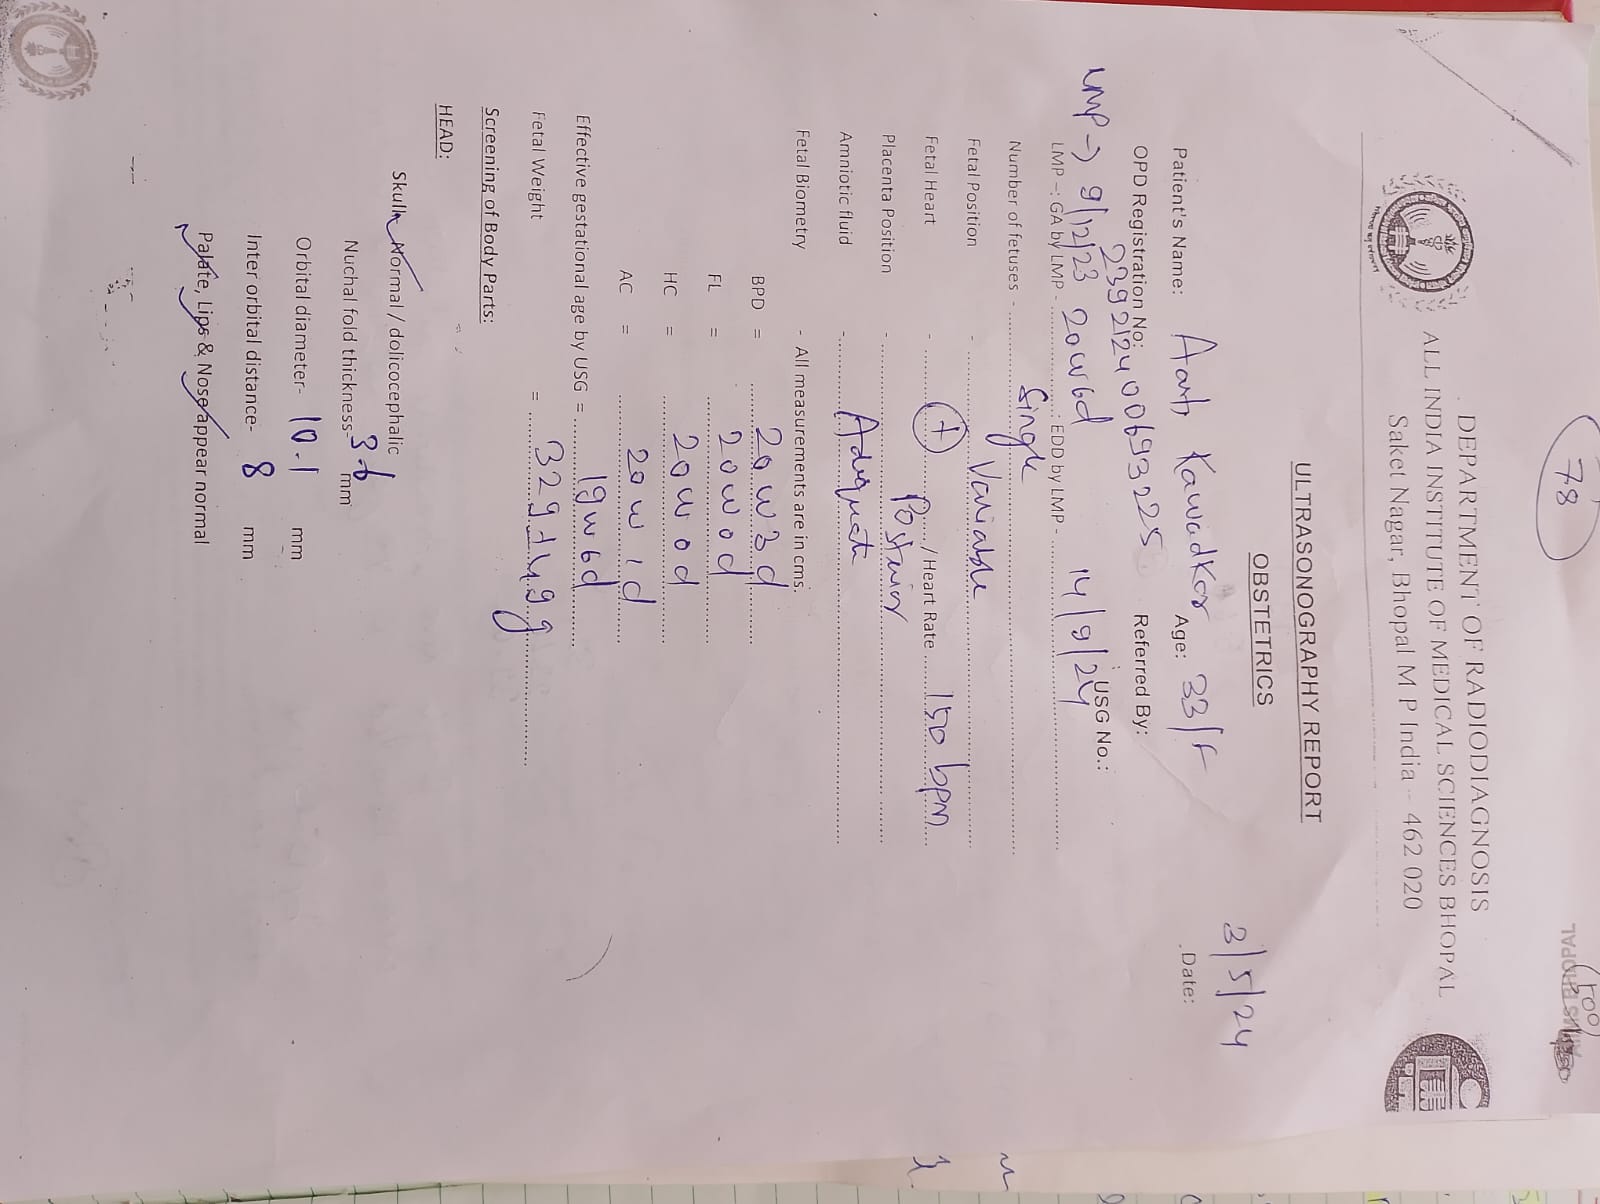 78
DEPARTMENT OF RADIODIAGNOSIS
ALL INDIA INSTITUTE OF MEDICAL SCIENCES BHOPAL
Saket Nagar, Bhopal M P India – 462 020
ULTRASONOGRAPHY REPORT
OBSTETRICS
3/5/24
Patient's Name: Aarti Kawadkar Age: 33/F Date:
OPD Registration No: 239212400693225 Referred By:
LMP → 9/12/23 20w6d 14/9/24 USG No.:
LMP –: GA by LMP - : EDD by LMP -
Number of fetuses - Single
Fetal Position - Variable
Fetal Heart - + / Heart Rate 150 bpm
Placenta Position - Posterior
Amniotic fluid - Adequate
Fetal Biometry - All measurements are in cms.
BPD = 20w3d
FL = 20w0d
HC = 20w0d
AC = 20w1d
Effective gestational age by USG = 19w6d
Fetal Weight = 329±49g
Screening of Body Parts:
HEAD:
Skull- Normal / dolicocephalic
Nuchal fold thickness- 3.6 mm
Orbital diameter- 10.1 mm
Inter orbital distance- 8 mm
Palate, Lips & Nose appear normal